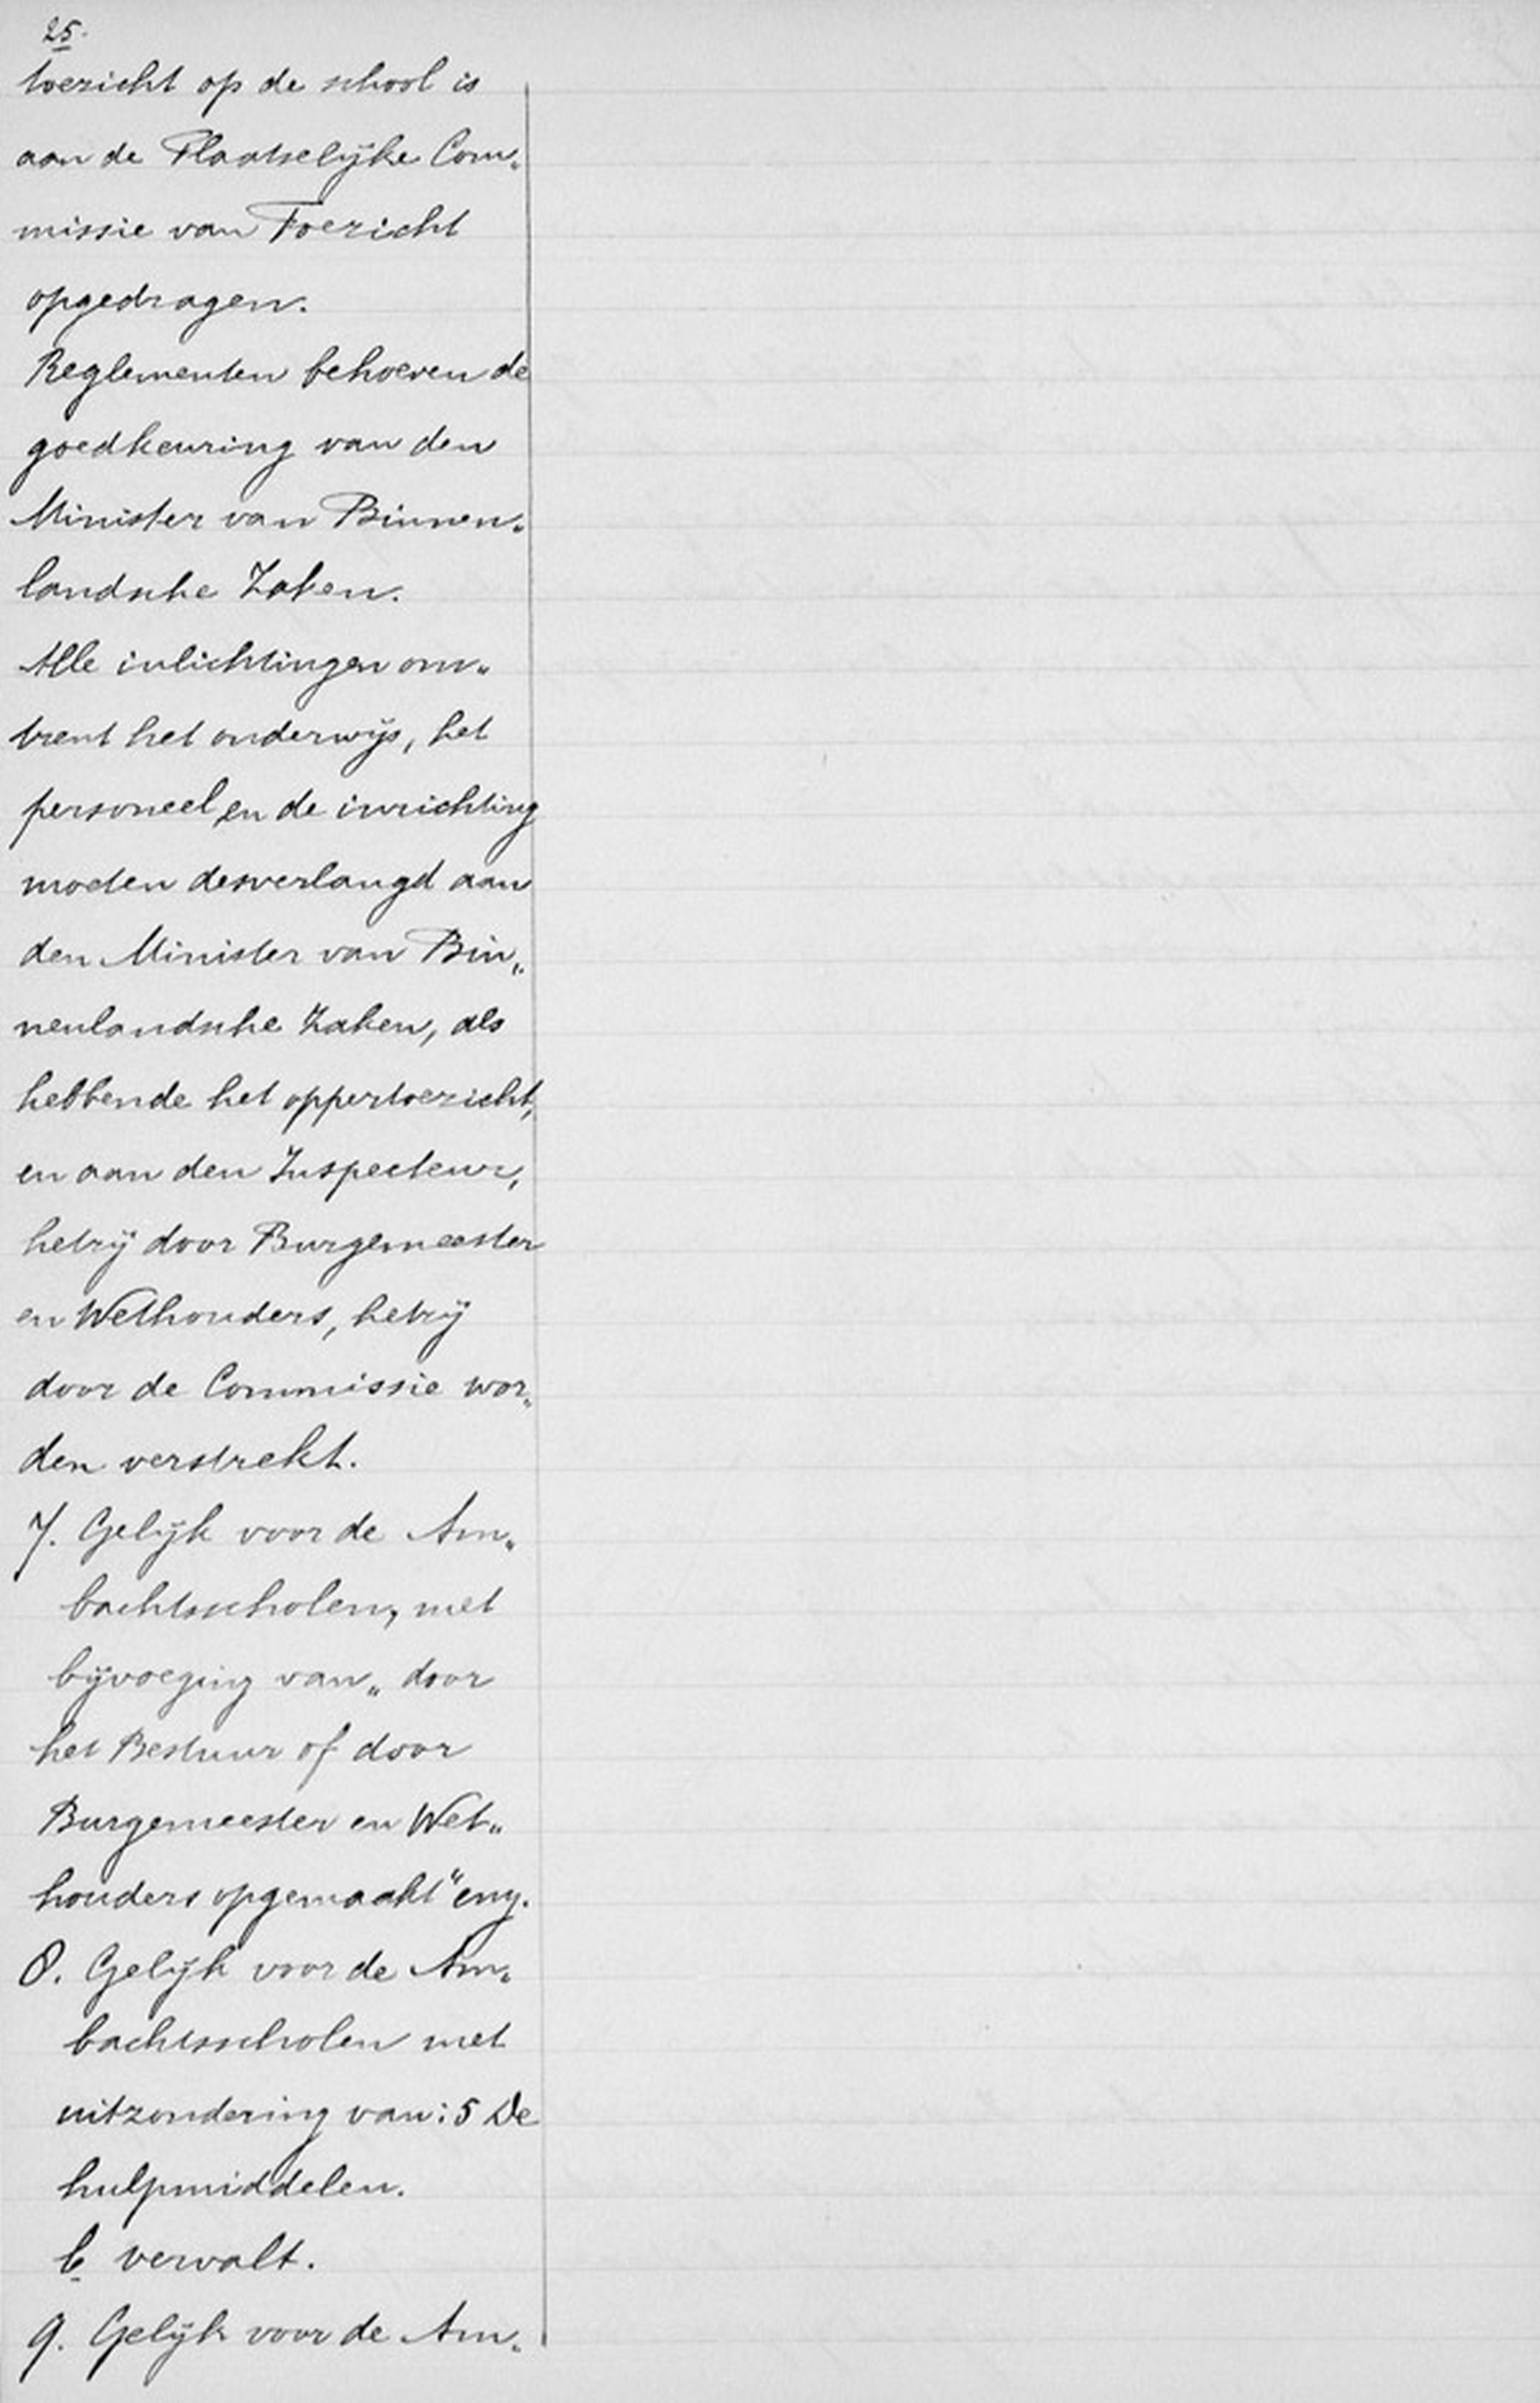 25.
toezicht op de school is
aan de Plaatselijke Com„
missie van Toezicht
opgedragen.
Reglementen behoeven de
goedkeuring van den
Minister van Binnen„
landsche Zaken.
Alle inlichtingen om„
trent het onderwijs, het
personeel en de inrichting
moeten desverlangd aan
den Minister van Bin„
nenlandsche Zaken, als
hebbende het oppertoezicht,
en aan den Inspecteur,
hetzij door Burgemeester
en Wethouders, hetzij
door de Commissie wor„
den verstrekt.
7. Gelijk voor de Am„
bachtsscholen, met
bijvoeging van „door
het Bestuur of door
Burgemeester en Wet„
houders opgemaakt" enz.
8. Gelijk voor de Am„
bachtsscholen met
uitzondering van: 5 De
hulpmiddelen.
b vervalt.
9. Gelijk voor de Am„